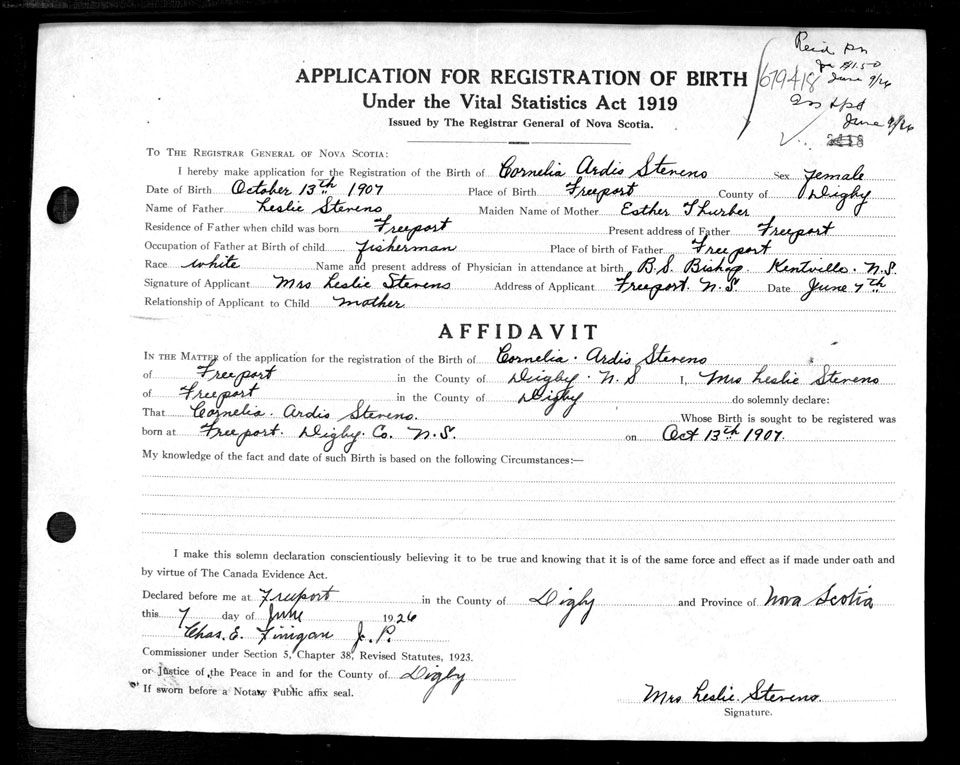 APPLICATION FOR REGISTRATION OF BIRTH
Under the Vital Statistics Act 1919
Issued by The Registrar General of Nova Scotia.
679418
$1.50
June 9/26
June 9/26
TO THE REGISTRAR GENERAL OF NOVA SCOTIA:
I hereby make application for the Registration of the Birth of Cornelia Ardis Stevens Sex female
Date of Birth October 13th 1907 Place of Birth Freeport County of Digby
Name of Father Leslie Stevens Maiden Name of Mother Esther Thurber
Residence of Father when child was born Freeport Present address of Father Freeport
Occupation of Father at Birth of child fisherman Place of birth of Father Freeport
Race white Name and present address of Physician in attendance at birth B.S. Bishop. Kentville. N.S.
Signature of Applicant Mrs Leslie Stevens Address of Applicant Freeport. N.S. Date June 7th
Relationship of Applicant to Child mother
AFFIDAVIT
IN THE MATTER of the application for the registration of the Birth of Cornelia. Ardis Stevens
of Freeport in the County of Digby. N.S I, Mrs Leslie Stevens
of Freeport in the County of Digby do solemnly declare:
That Cornelia. Ardis Stevens. Whose Birth is sought to be registered was
born at Freeport. Digby. Co. N.S. on Oct 13th 1907.
My knowledge of the fact and date of such Birth is based on the following Circumstances:—
I make this solemn declaration conscientiously believing it to be true and knowing that it is of the same force and effect as if made under oath and
by virtue of The Canada Evidence Act.
Declared before me at Freeport in the County of Digby and Province of Nova Scotia
this 7 day of June 1926
Chas. E. Finigan J.P.
Commissioner under Section 5, Chapter 38, Revised Statutes, 1923.
or Justice of the Peace in and for the County of Digby
If sworn before a Notary Public affix seal.
Mrs Leslie. Stevens.
Signature.